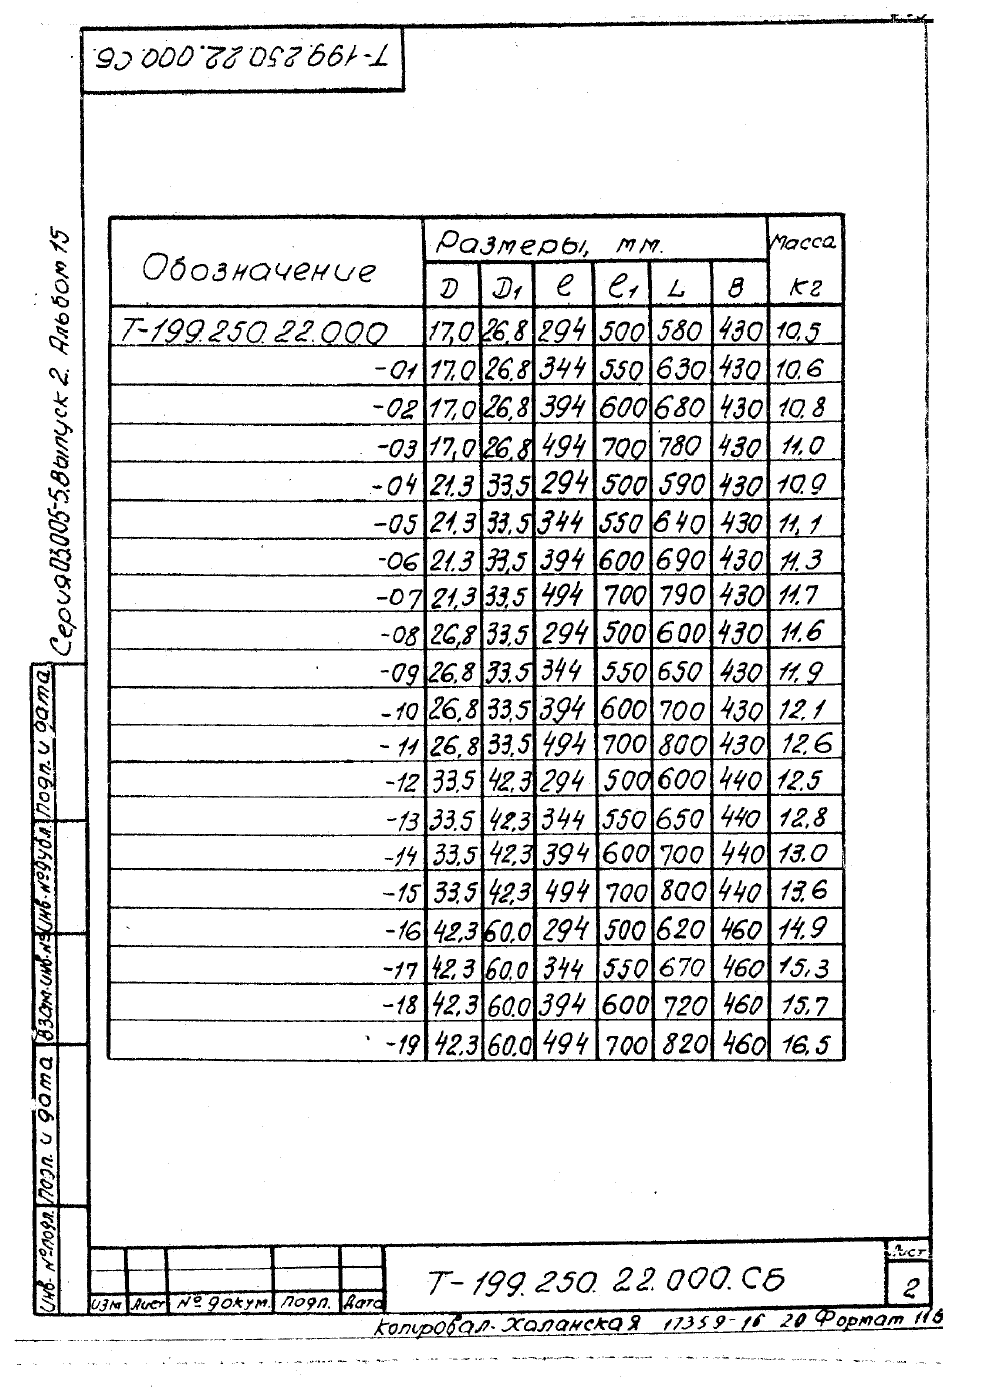 Т-199.250.22.000.СБ
Серия 03.005-5. Выпуск 2. Альбом 15
Обозначение Размеры, мм. Масса кг
D D1 ℓ ℓ1 L B
Т-199.250.22.000 17,0 26,8 294 500 580 430 10,5
-01 17,0 26,8 344 550 630 430 10.6
-02 17,0 26,8 394 600 680 430 10,8
-03 17,0 26,8 494 700 780 430 11.0
-04 21.3 33,5 294 500 590 430 10.9
-05 21.3 33,5 344 550 640 430 11,1
-06 21.3 33,5 394 600 690 430 11.3
-07 21,3 33,5 494 700 790 430 11.7
-08 26,8 33,5 294 500 600 430 11.6
-09 26.8 33.5 344 550 650 430 11,9
-10 26,8 33,5 394 600 700 430 12.1
-11 26,8 33.5 494 700 800 430 12,6
-12 33.5 42,3 294 500 600 440 12,5
-13 33.5 42,3 344 550 650 440 12,8
-14 33,5 42,3 394 600 700 440 13.0
-15 33,5 42,3 494 700 800 440 13.6
-16 42,3 60.0 294 500 620 460 14,9
-17 42.3 60,0 344 550 670 460 15,3
-18 42,3 60.0 394 600 720 460 15,7
-19 42.3 60.0 494 700 820 460 16,5
Инв. № подл. Подп. и дата Взам. инв. № Инв. № дубл. Подп. и дата
Изм Лист № докум. Подп. Дата
Т-199.250.22.000.СБ
Лист
2
Копировал- Халанская 17359-16 20 Формат 11б